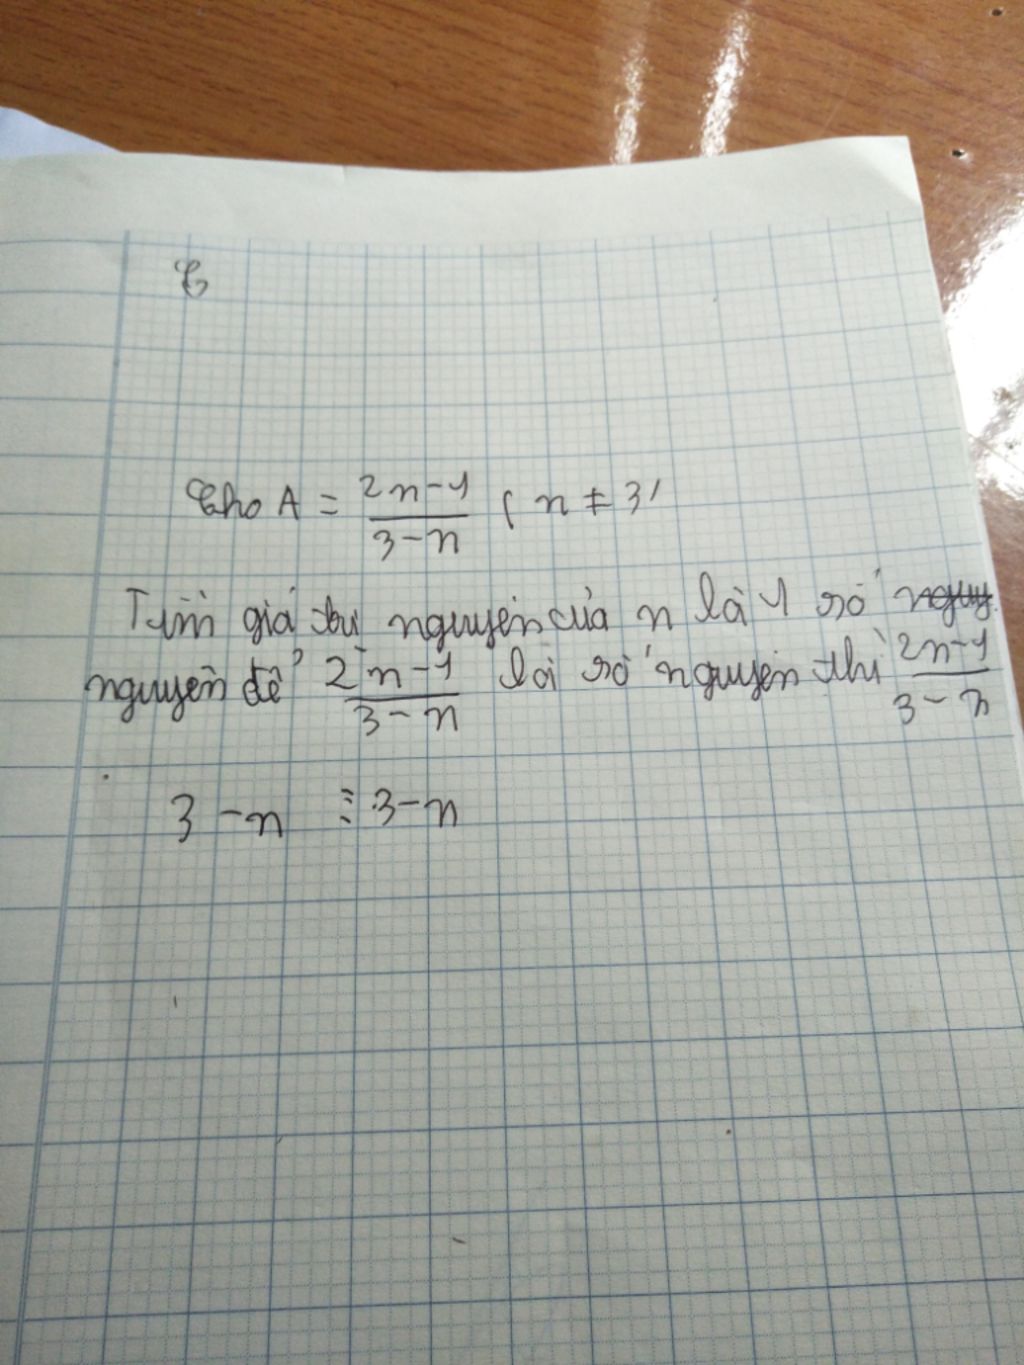 C
Cho A = \frac{2n-1}{3-n} ( n ≠ 3)
Tìm giá trị nguyên của n là 1 số
nguyên để \frac{2n-1}{3-n} là số nguyên thì \frac{2n-1}{3-n}
3 - n ⋮ 3 - n